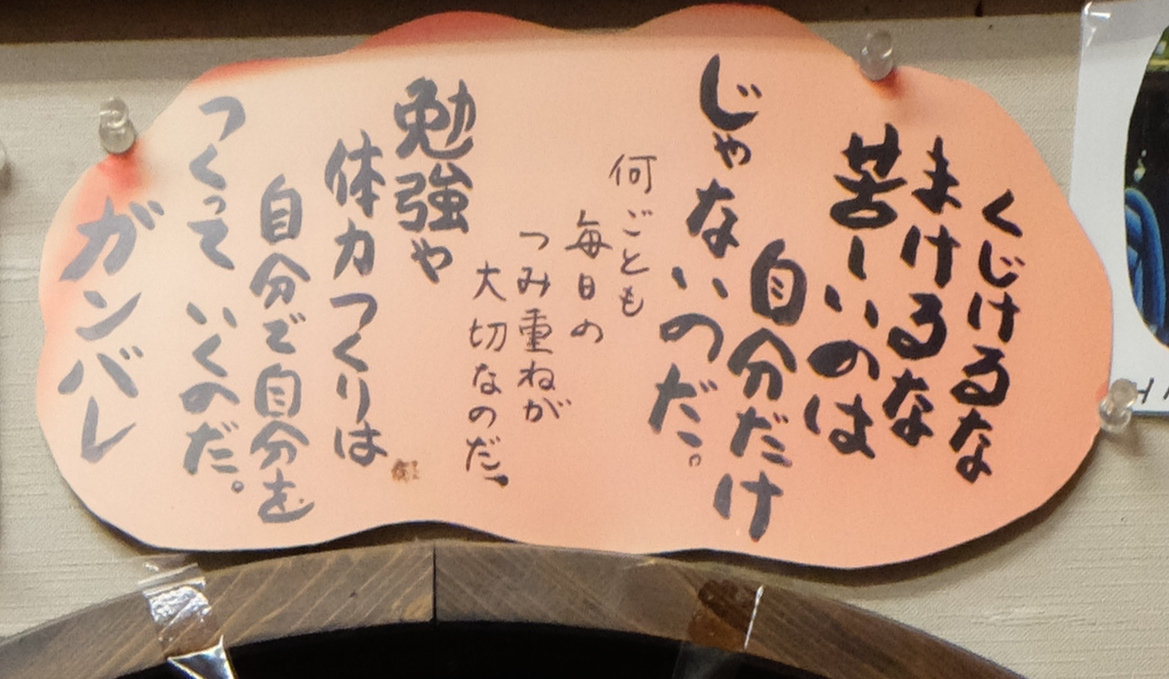 くじけるな
まけるな
苦しいのは
自分だけ
じゃないのだ。
何ごとも
毎日の
つみ重ねが
大切なのだ、
勉強や
体力つくりは
自分で自分を
つくって いくのだ。
ガンバレ